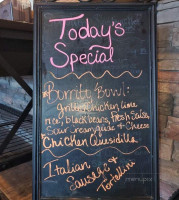 Today's
Special
Burrito Bowl:
grilled chicken, lime
rice, black beans, fresh salsa,
Sour Cream, guac & Cheese
Chicken Quesadilla
Italian
Sausage &
Tortellini